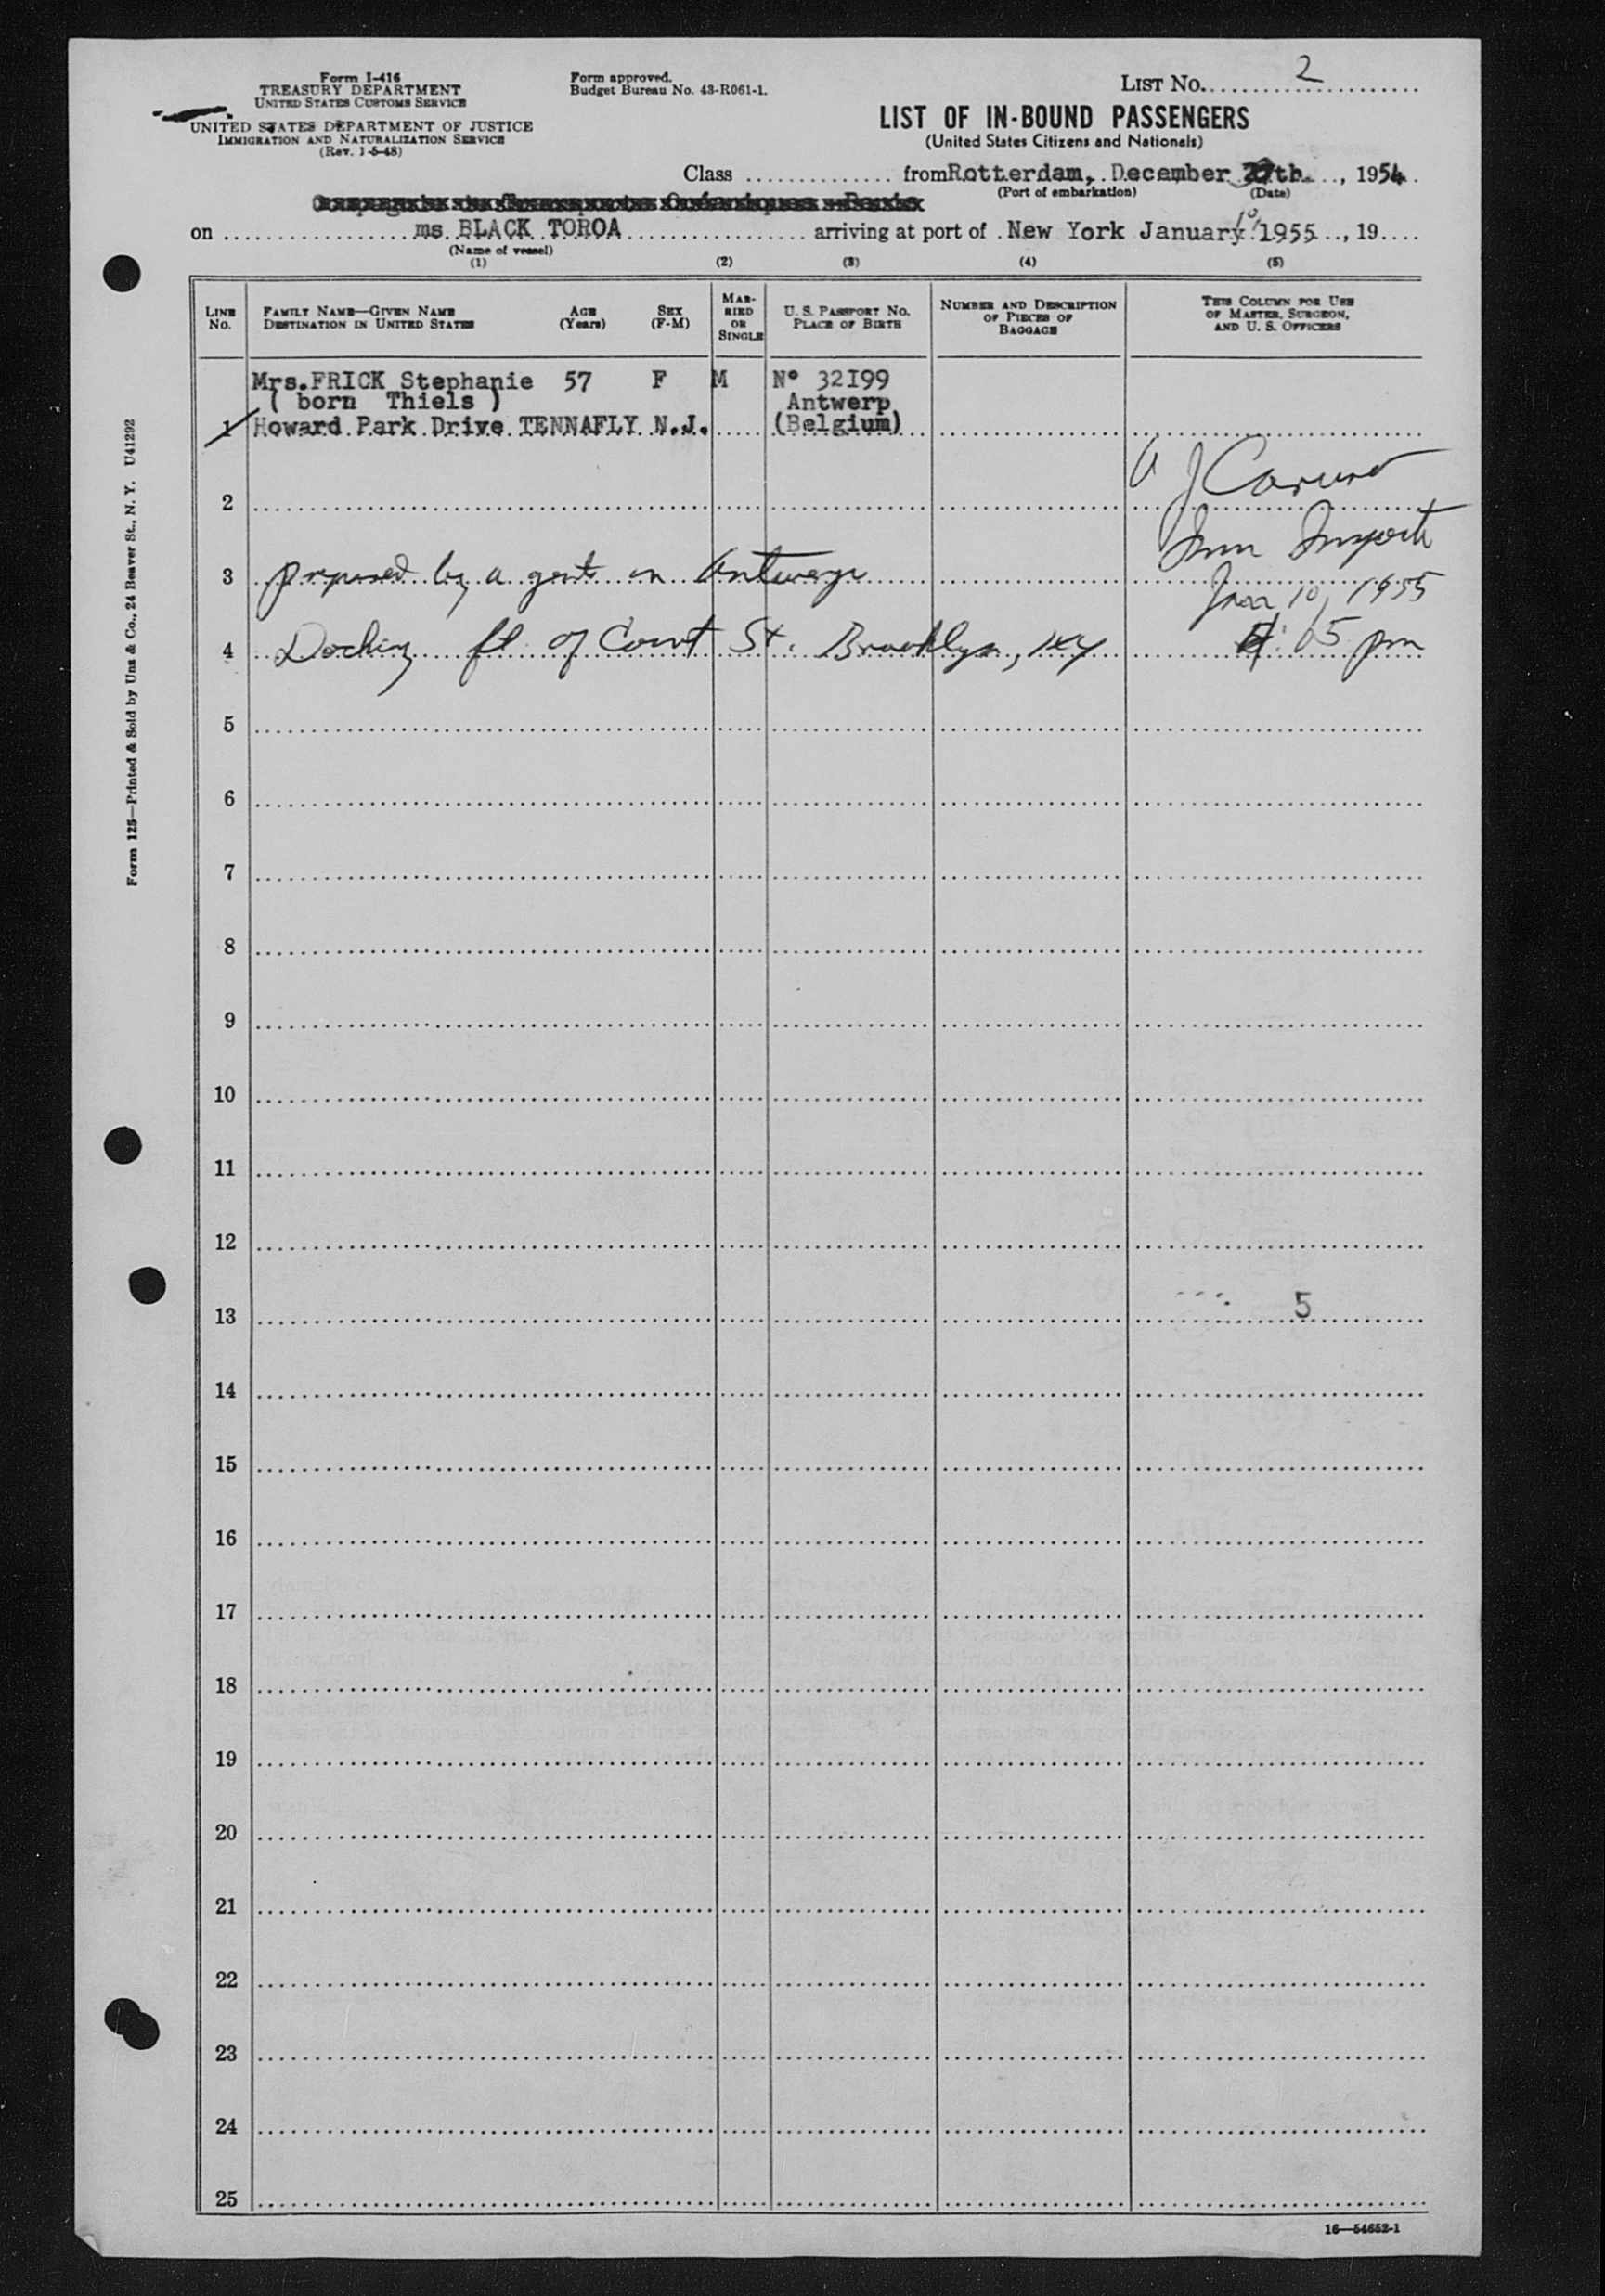 Form I-416
TREASURY DEPARTMENT
UNITED STATES CUSTOMS SERVICE
UNITED STATES DEPARTMENT OF JUSTICE
IMMIGRATION AND NATURALIZATION SERVICE
(Rev. 1-5-48)
Form approved.
Budget Bureau No. 43-R061-1.
LIST NO. 2
LIST OF IN-BOUND PASSENGERS
(United States Citizens and Nationals)
Class .............. from Rotterdam, December th, 1954
(Port of embarkation) (Date)
on ms BLACK TOROA arriving at port of New York January 10/ 1955, 19....
(Name of vessel)
(1) (2) (3) (4) (5)
LINE No.
FAMILY NAME—GIVEN NAME
DESTINATION IN UNITED STATES
AGE (Years)
SEX (F-M)
MARRIED OR SINGLE
U. S. PASSPORT NO.
PLACE OF BIRTH
NUMBER AND DESCRIPTION OF PIECES OF BAGGAGE
THIS COLUMN FOR USE OF MASTER, SURGEON, AND U. S. OFFICERS
Mrs. FRICK Stephanie 57 F M N° 32I99
( born Thiels ) Antwerp
1 Howard Park Drive TENNAFLY N.J. (Belgium)
J Caruso
2
Imm Inspector
3 prepared by agents in Antwerp
Jan 10, 1955
4 Docking ft of Court St. Brooklyn, NY
:05 pm
5
6
7
8
9
10
11
12
13 5
14
15
16
17
18
19
20
21
22
23
24
25
16—54652-1
Form 125—Printed & Sold by Unz & Co., 24 Beaver St., N. Y. U41292